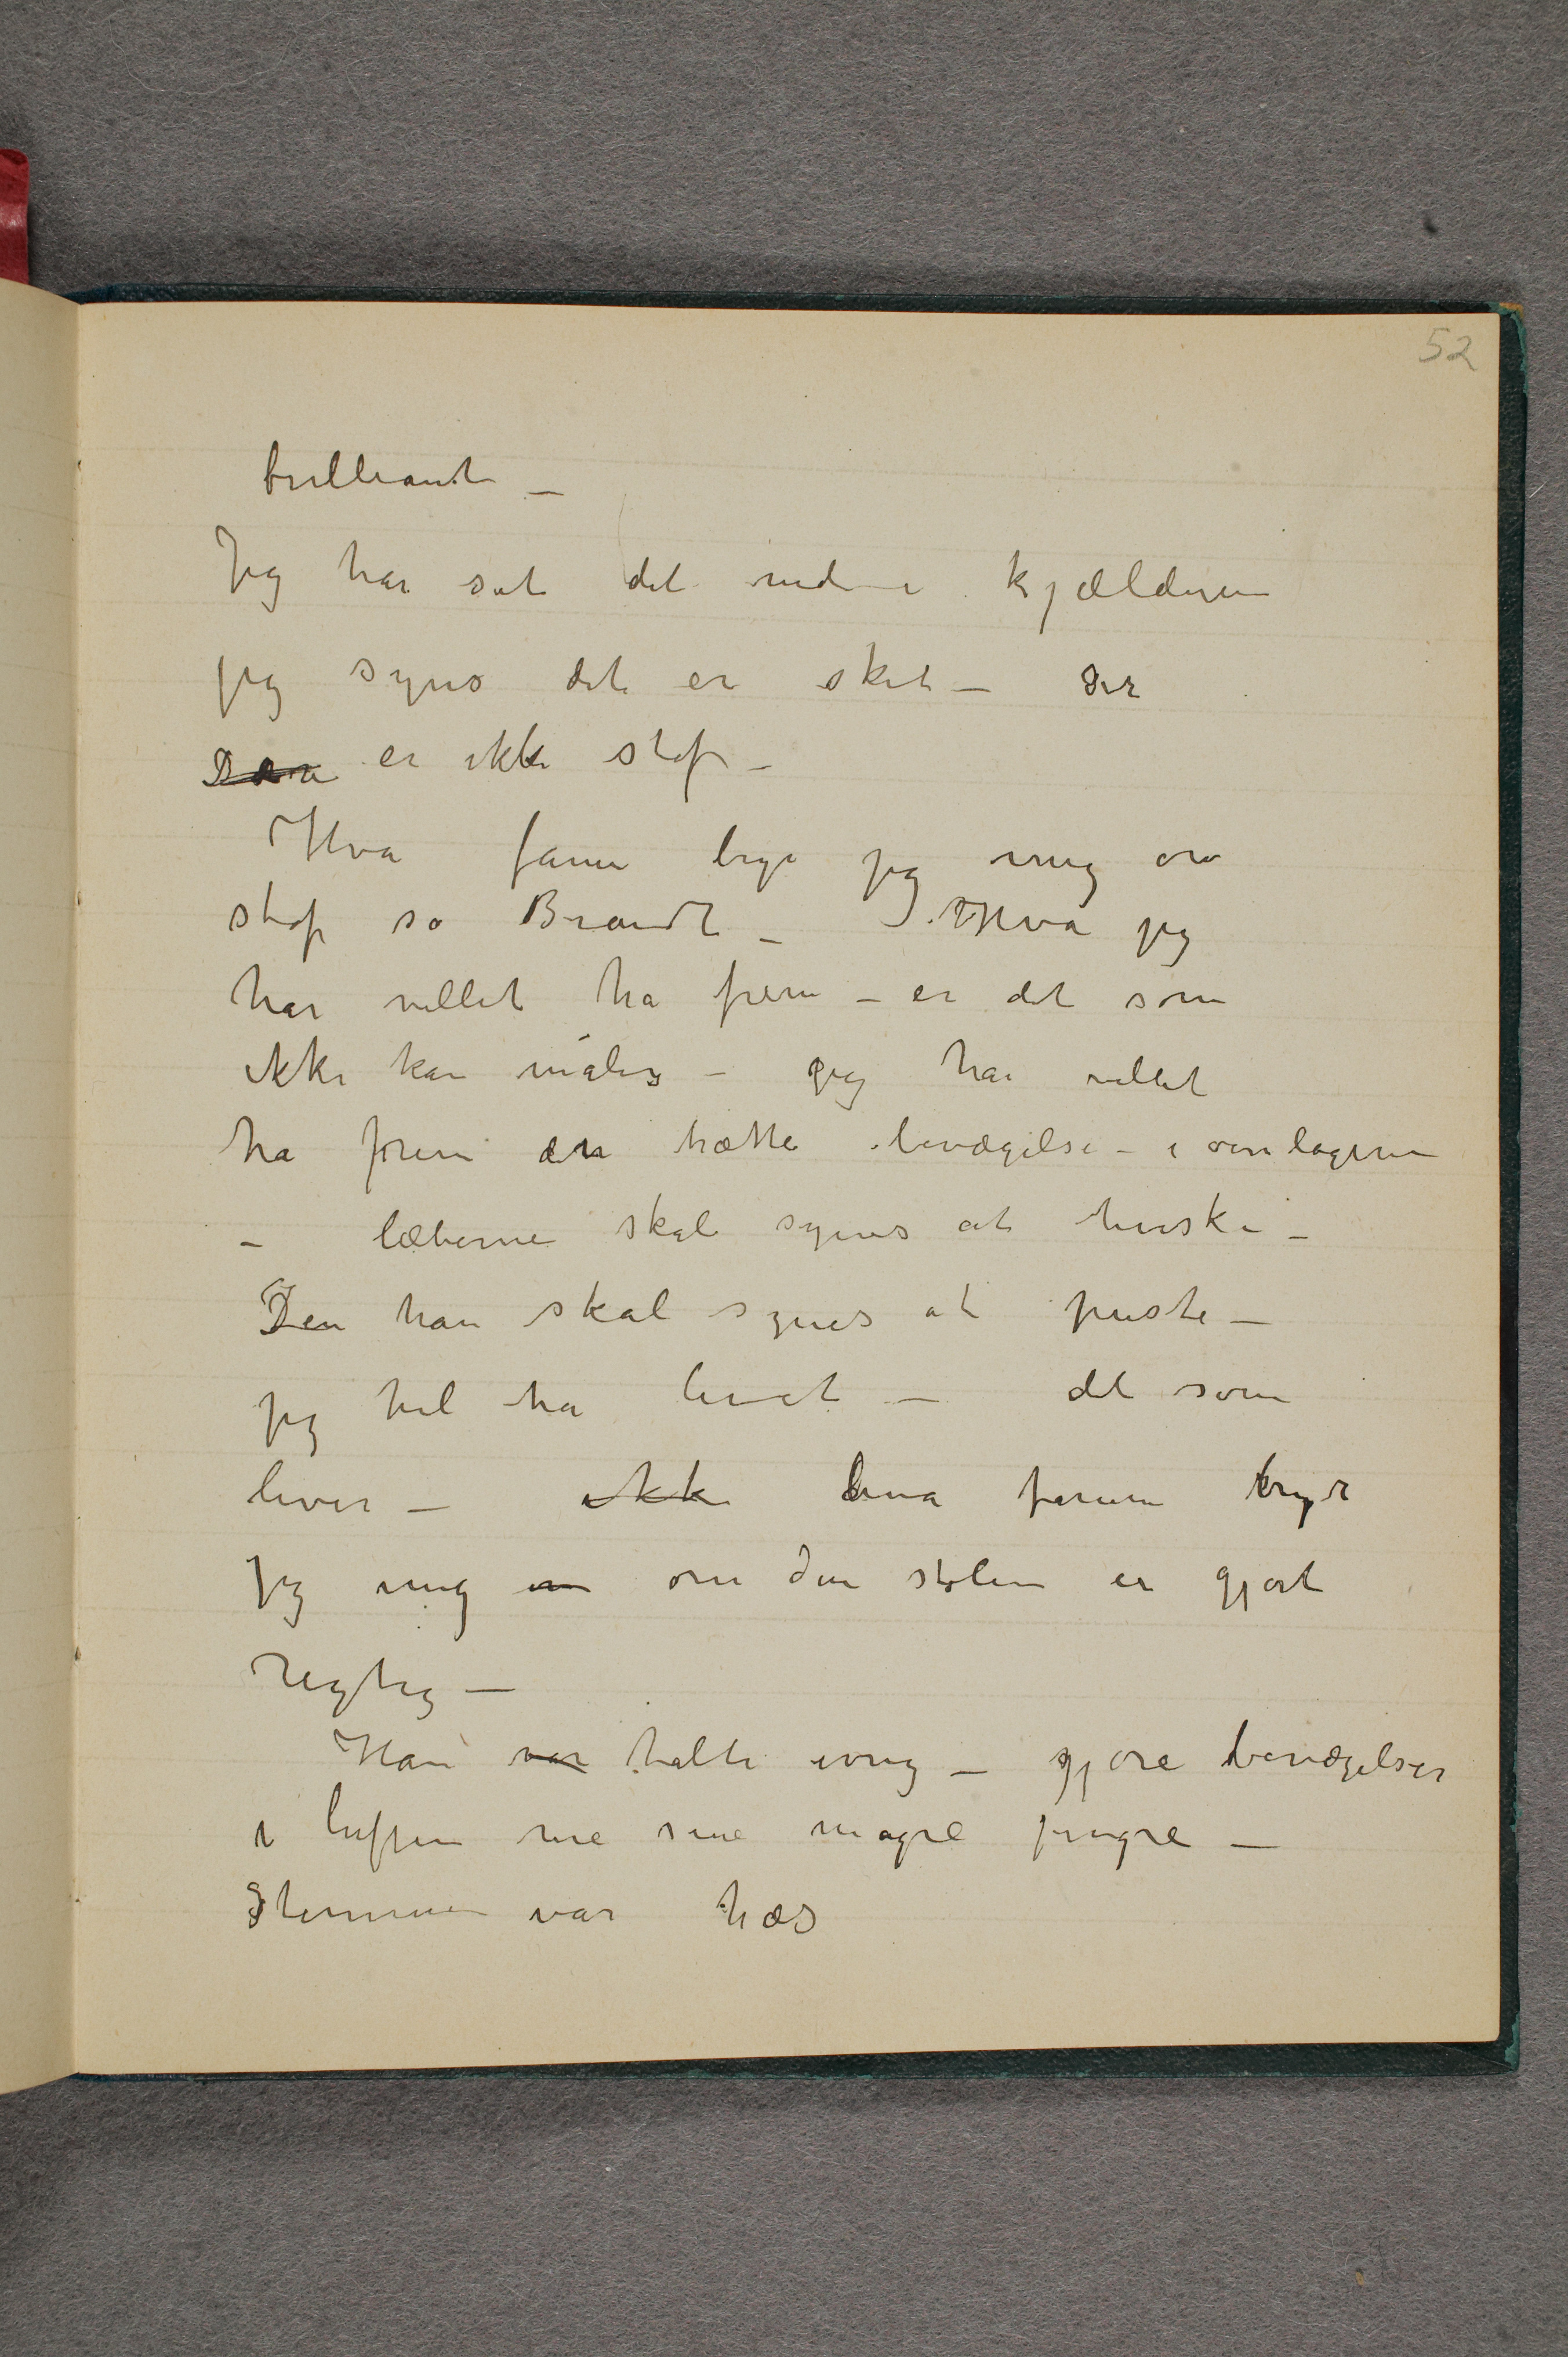 52
brilliant –
Jeg har sat det ned i kjælderen
jeg syns det er sket – der
Den er ikke stof –
Hva fanen bryr jeg mig om
stof sa Brandt – Hva jeg
har villet ha frem – er det som
ikke kan måles – jeg har villet
ha frem den trætte bevægelse – i øienlågene
– læberne skal synes at hviske –
Den han skal synes at puste –
jeg vil ha livet – det som
lever – ikke hva fanen bryr
jeg mig om om den stolen er gjort
rigtig –
Han var talte ivrig – gjore bevægelser
i luften me sine magre fingre –
Stemmen var hæs